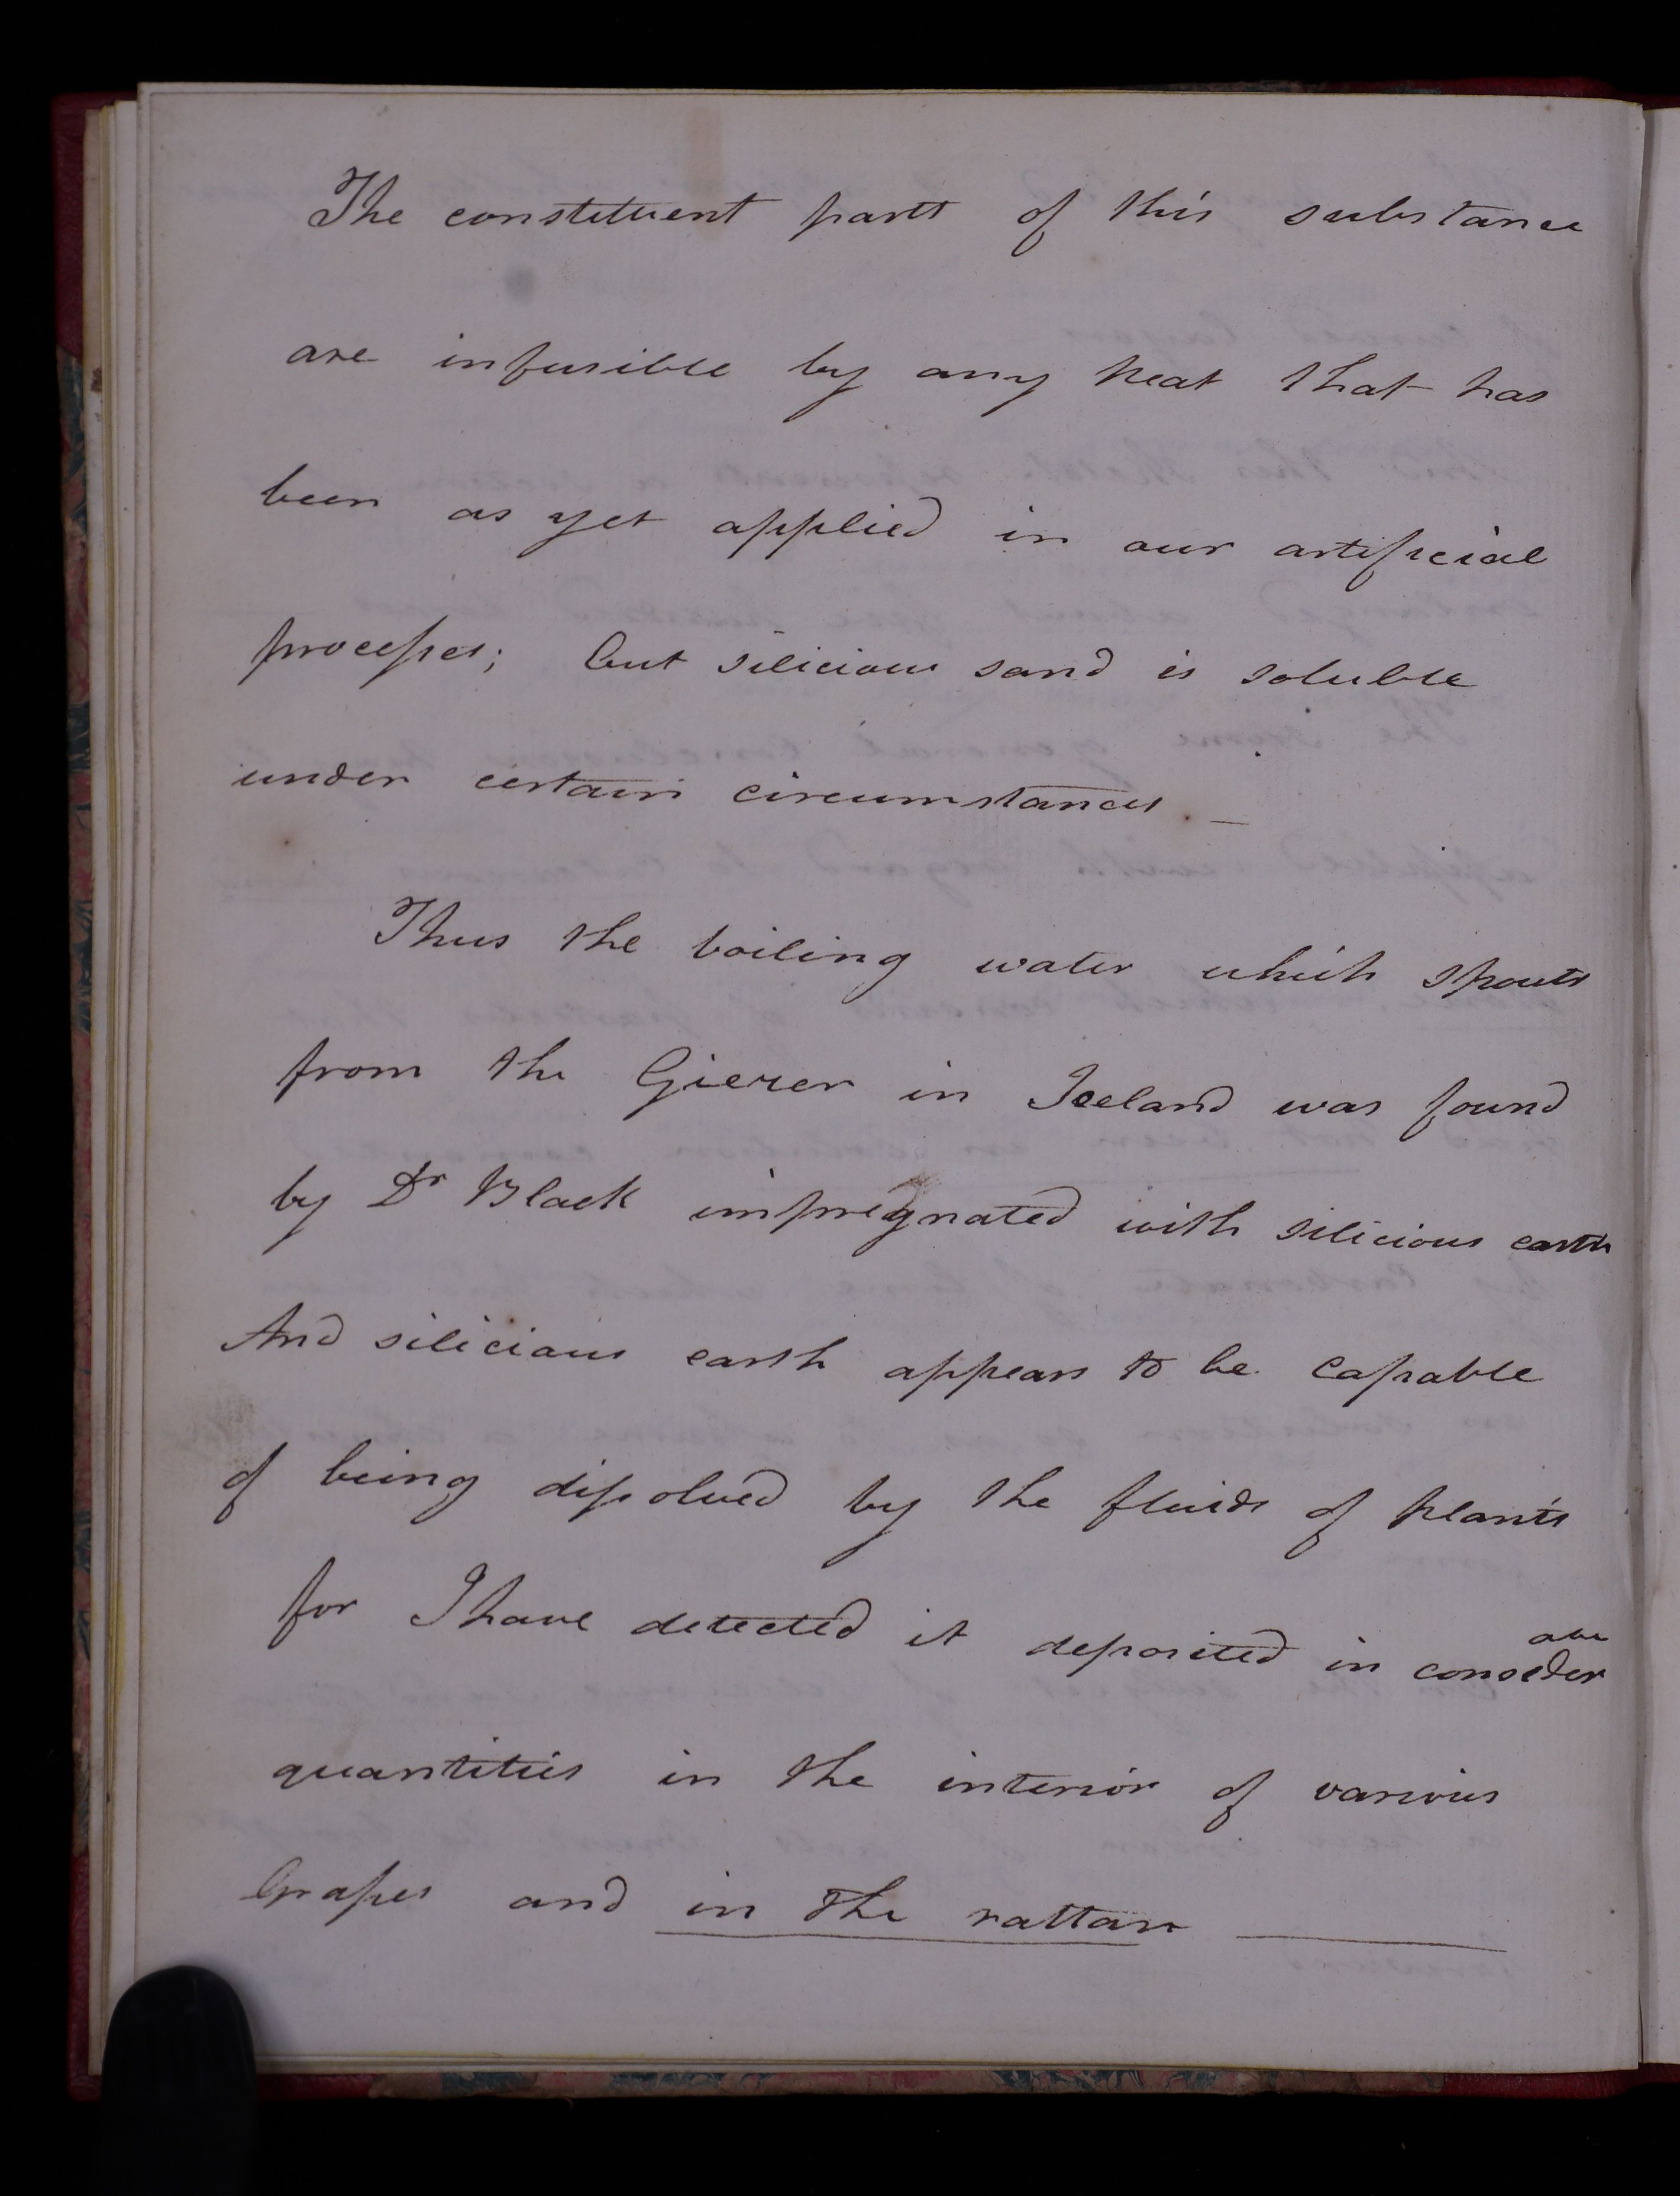 The constituent parts of this substance
are infusible by any heat that has
been as yet applied in our artificial
processes; but silicious sand is soluble
under certain circumstances. _
Thus the boiling water which spouts
from the Gieser in Iceland was found
by Dr Black impregnated with silicious earth
And silicious earth appears to be capable
of being dissolved by the fluids of plants
for I have detected it deposited in considerable
quantities in the interior of various
Grasses and in the rattan